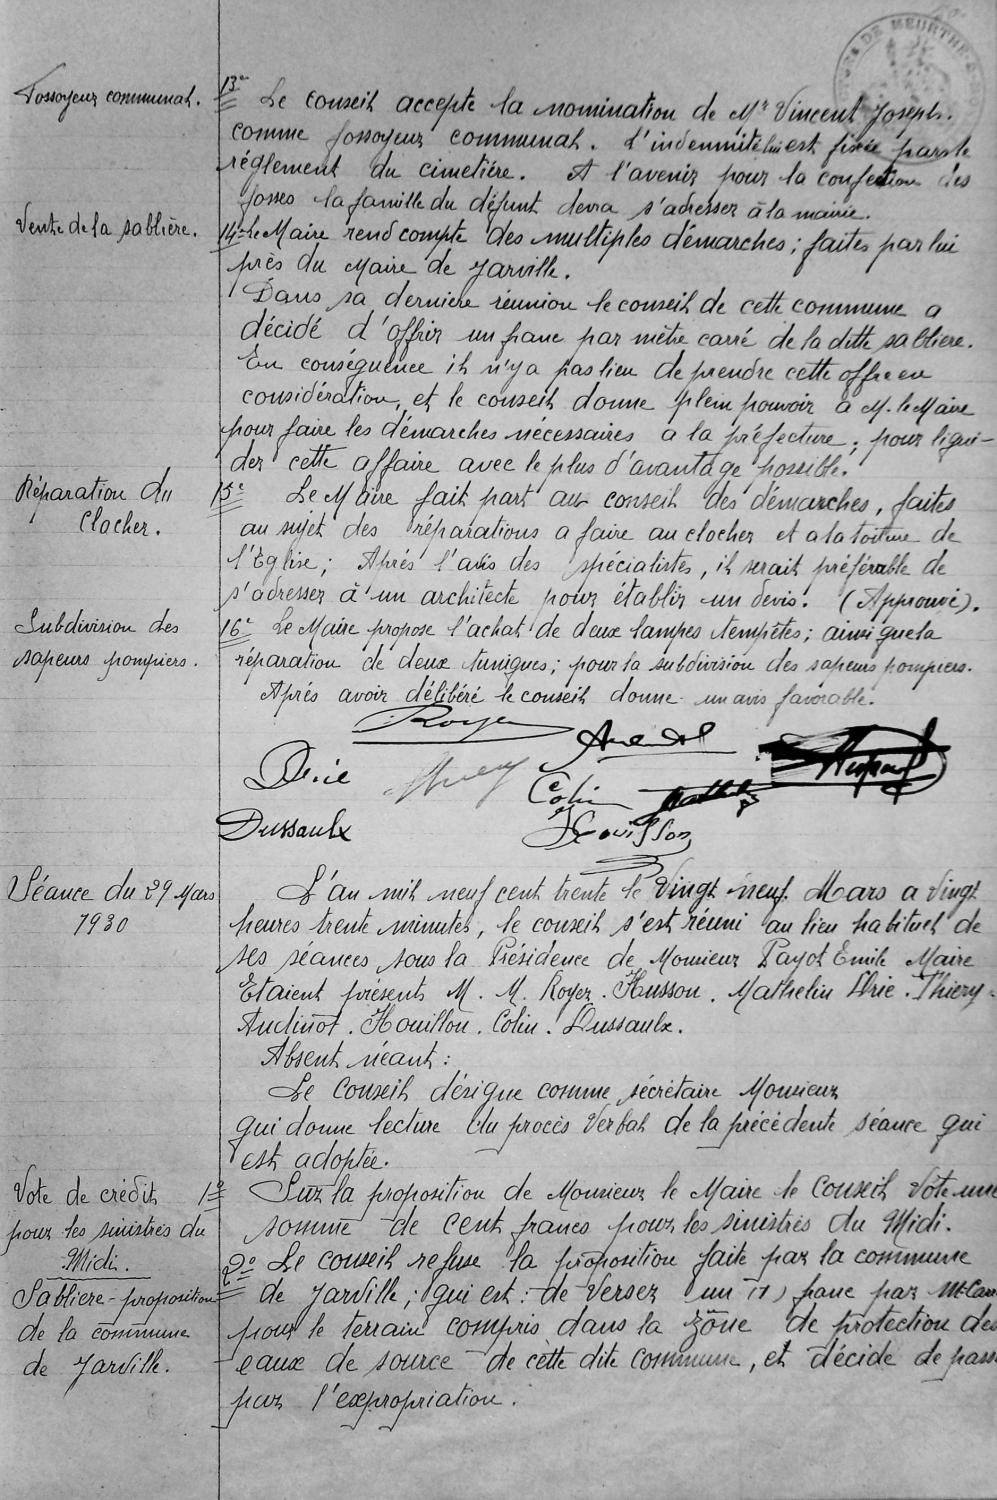 DE MEURTHE
Fossoyeur communal.
13e Le conseil accepte la nomination de Mr Vincent Joseph.
comme fossoyeur communal. L'indemnité lui est fixée par le
réglement du cimetière. A l'avenir pour la confection des
fosses la famille du défunt devra s'adresser à la mairie.
Vente de la sablière.
14e Le Maire rend compte des multiples démarches; faites par lui
près du Maire de Jarville.
Dans sa dernière réunion le conseil de cette commune a
décidé d'offrir un franc par mètre carré de la ditte sablière.
En conséquence il n'y a pas lieu de prendre cette offre en
considération, et le conseil donne plein pouvoir à M. le Maire
pour faire les démarches nécessaires a la préfecture; pour liqui-
der cette affaire avec le plus d'avantage possible.
Réparation du
clocher.
15e Le Maire fait part au conseil des démarches, faites
au sujet des réparations a faire au clocher et a la toiture de
l'Eglise; Après l'avis des spécialistes, il serait préférable de
s'adresser à un architecte pour établir un devis. (Approuvé).
Subdivision des
sapeurs pompiers.
16e Le Maire propose l'achat de deux lampes tempêtes; ainsi que la
réparation de deux tuniques; pour la subdivision des sapeurs pompiers.
Après avoir délibéré le conseil donne un avis favorable.
Royer
Drie Colin
Dussaulx Houillon
Séance du 29 Mars
1930
L'an mil neuf cent trente le Vingt neuf Mars a Vingt
heures trente minutes, le conseil s'est réuni au lieu habituel de
ses séances sous la Présidence de Monsieur Payot Emile Maire
Etaient présents M. M. Royer. Husson. Mathelin Drie. Thiery-
Audinot. Houillon. Colin. Dussaulx.
Absent néant:
Le Conseil désigne comme sécrétaire Monsieur
qui donne lecture du procès Verbal de la précédente séance qui
est adoptée.
Vote de crédit
pour les sinistrés du
Midi.
1e Sur la proposition de Monsieur le Maire le Conseil Vote une
somme de cent francs pour les sinistrés du Midi.
Sablière - proposition
de la commune
de Jarville.
2e Le conseil refuse la proposition faite par la commune
de Jarville; qui est: de Verser un (1) franc par M. Car
pour le terrain compris dans la zône de protection des
eaux de source de cette dite Commune, et décide de pass
par l'expropriation.